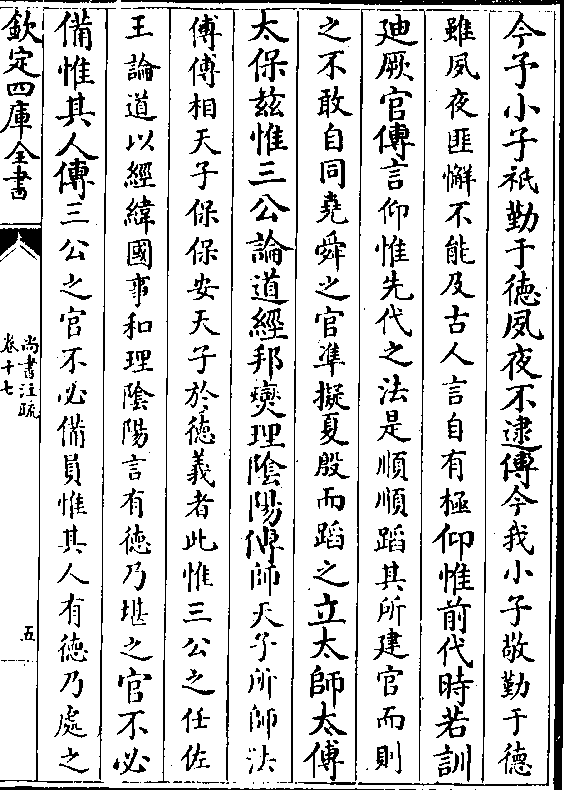 今予小子祗勤于徳夙夜不逮傳今我小子敬勤于德
雖夙夜匪懈不能及古人言自有極仰惟前代時若訓
廸厥官傳言仰惟先代之法是順順蹈其所建官而則
之不敢自同堯舜之官凖擬夏殷而蹈之立太師太傅
太保兹惟三公論道經邦爕理隂陽傳師天子所師法
傅傅相天子保保安天子於徳義者此惟三公之任佐
王論道以經緯國事和理隂陽言有徳乃堪之官不必
備惟其人傳三公之官不必備員惟其人有徳乃處之
欽定四庫全書
尚書注疏
卷十七
五